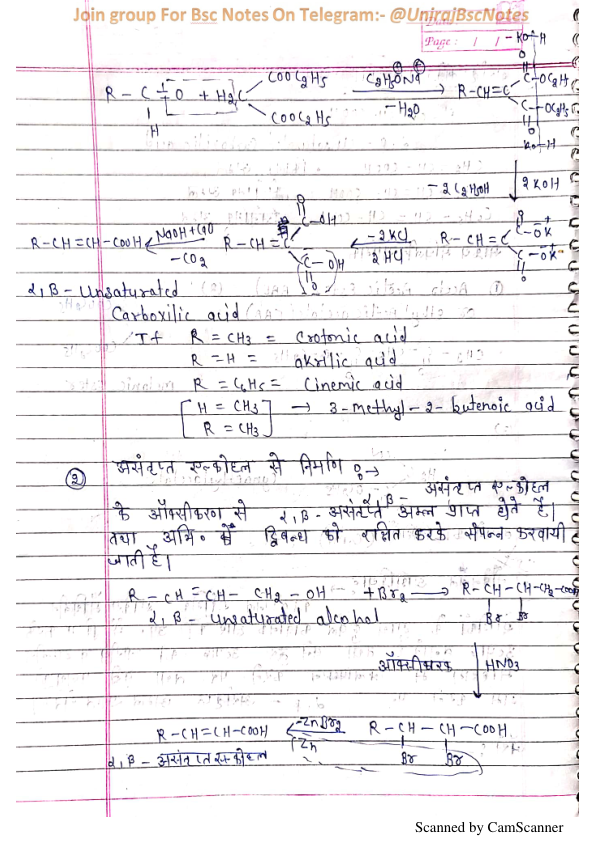 Join group For Bsc Notes On Telegram:- @UnirajBscNotes
Page: / /
R - C = O + H2C
H
COOC2H5
COOC2H5
C2H5ONa
-H2O
R-CH=C
C-OC2H5
C-OC2H5
O
O
KO-H
KO-H
-2C2H5OH
2KOH
R-CH=CH-COOH
NaOH+CaO
-CO2
R-CH=C
C-OH
C-OH
O
O
-2KCl
2HCl
R-CH=C
C-OK
C-OK
O
O
α,β-Unsaturated
Carboxilic acid
If R = CH3 = Crotonic acid
R = H = akrilic acid
R = C6H5 = Cinemic acid
[H = CH3
R = CH3] → 3-methyl-2-butenoic acid
② असंतृप्त एल्कोहल से निर्माण :→
α,β- असंतृप्त एल्कोहल
के ऑक्सीकरण से α,β-असंतृप्त अम्ल प्राप्त होते हैं।
तथा अभि० में द्विबन्ध को रक्षित करके संपन्न करवायी
जाती है।
R-CH=CH-CH2-OH +Br2 → R-CH-CH-CH2-COOH
Br Br
α,β-unsaturated alcohol
ऑक्सीकारक HNO3
R-CH=CH-COOH
-ZnBr2
Zn
R-CH-CH-COOH
Br Br
α,β-असंतृप्त एल्कोहल
Scanned by CamScanner